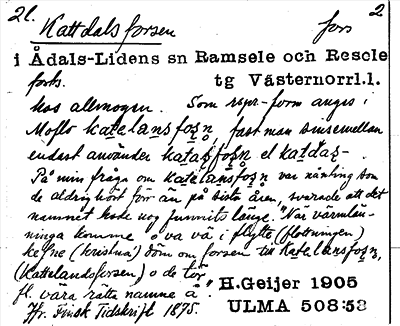 21. 2
Kattdalsforsen fors
i Ådals-Lidens sn Ramsele och Resele
forts. tg Västernorrl.l.
hos allmogen. Som repr-form anges i
Moflo kaṭelansfoṣṇ, fast man sinsemellan
endast använder kaṭaṣfoṣṇ el kaṭdaṣ-
På min fråga om kaṭelansfoṣṇ var nånting som
de aldrig hört förr än på sista åren, svarade att det
namnet hade nog funnits länge. "När värmlän-
ninga komme o va vä i flytte (flottningen)
(kristna) döm om forsen till Katelansfoṣṇ,
(Kattelandsforsen) o de tör
fl. vära rätta namne å." H.Geijer 1905
Jfr. Finsk Tidskrift 1875. ULMA 508:53